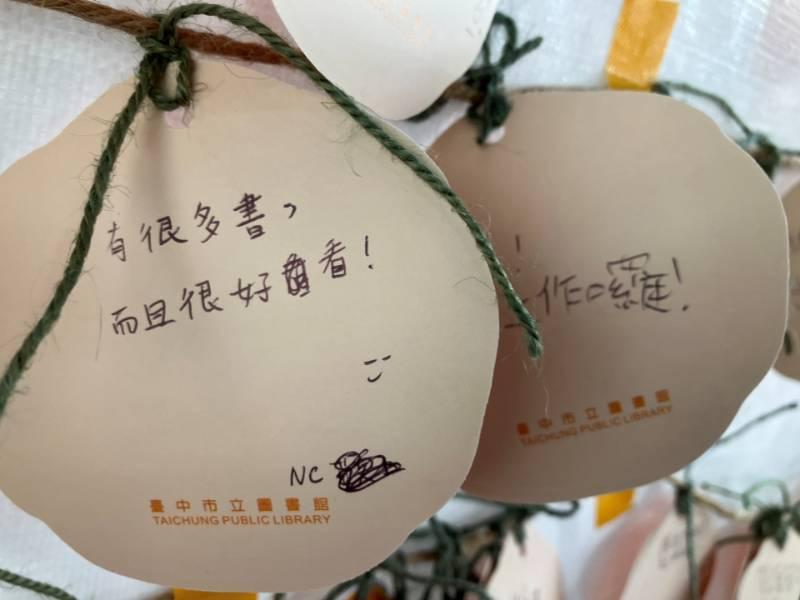 有很多書，
而且很好看！
NC
臺中市立圖書館
TAICHUNG PUBLIC LIBRARY
！
作囉！
臺中市立圖書館
TAICHUNG PUBLIC LIBRARY